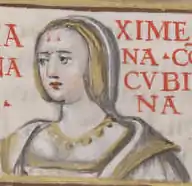 A
NA
.
XIME
NA·CO
CVBI
NA